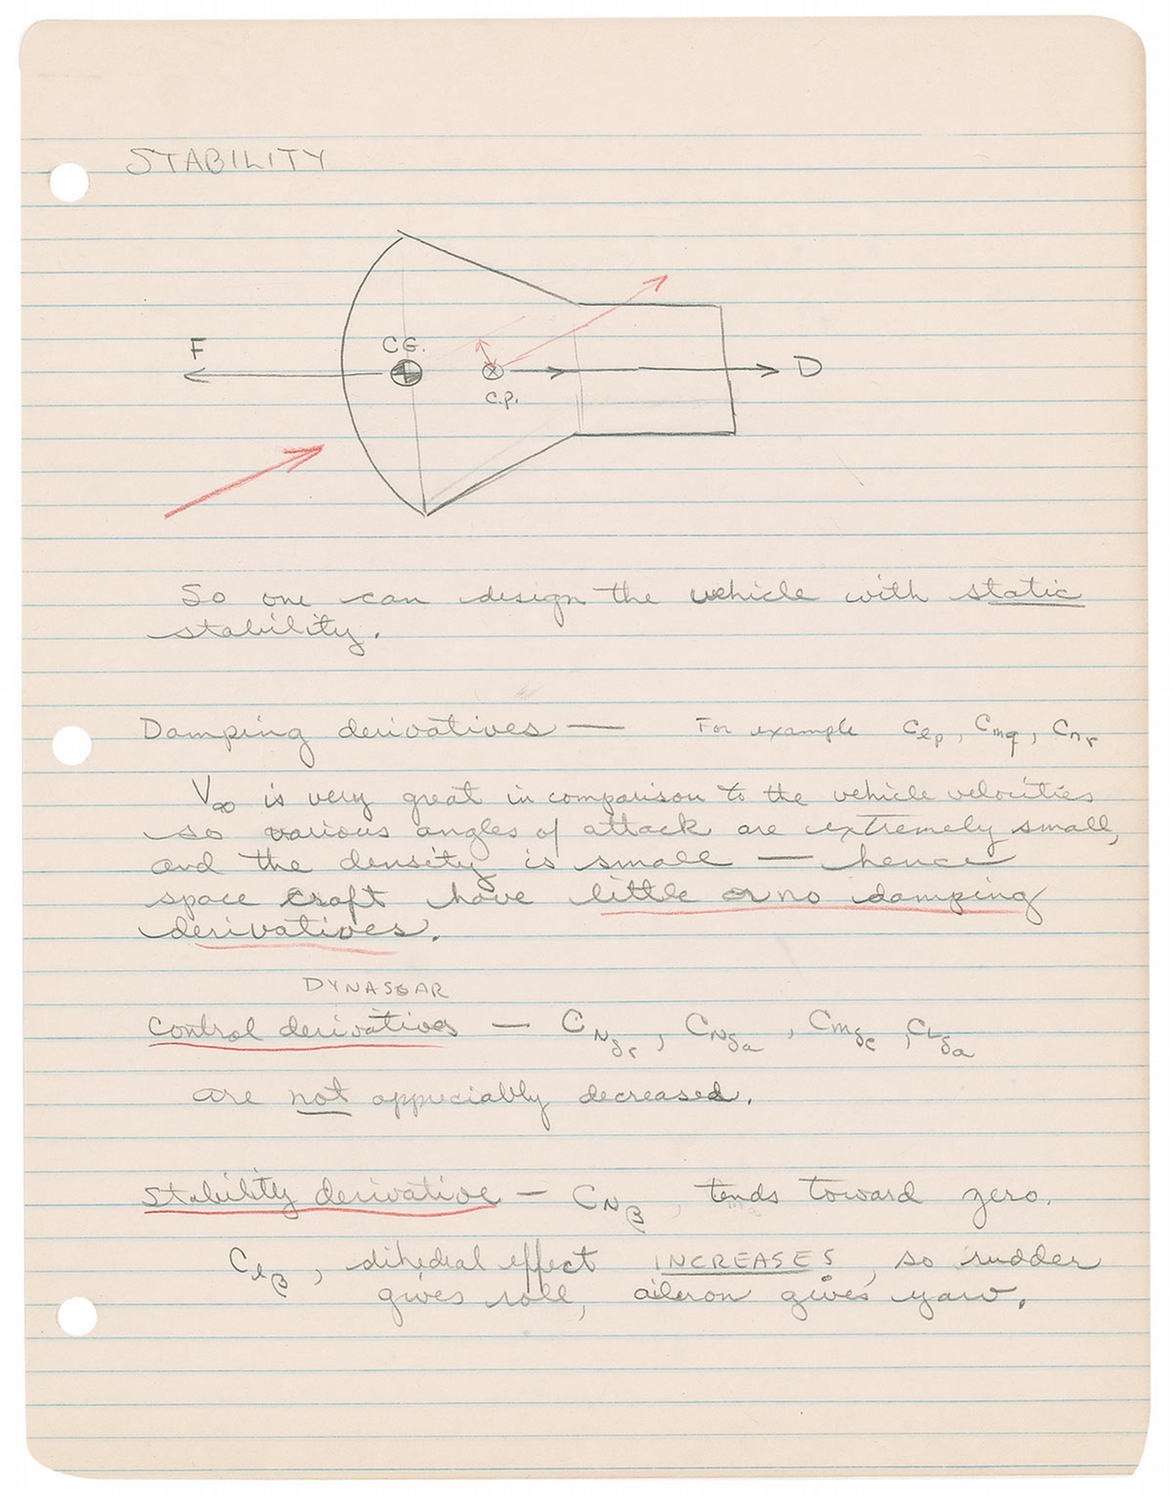 STABILITY
F
C.G.
C.P.
D
So one can design the vehicle with static
stability.
Damping derivatives — For example Clp, Cmq, Cnr
V∞ is very great in comparison to the vehicle velocities
so various angles of attack are extremely small,
and the density is small — hence
space craft have little or no damping
derivatives.
DYNASOAR
Control derivatives — CNδr, CNδa, Cmδe, CLδa
are not appreciably decreased.
Stability derivative — CNβ, tends toward zero.
Clβ, dihedral effect INCREASES, so rudder
gives roll, aileron gives yaw.